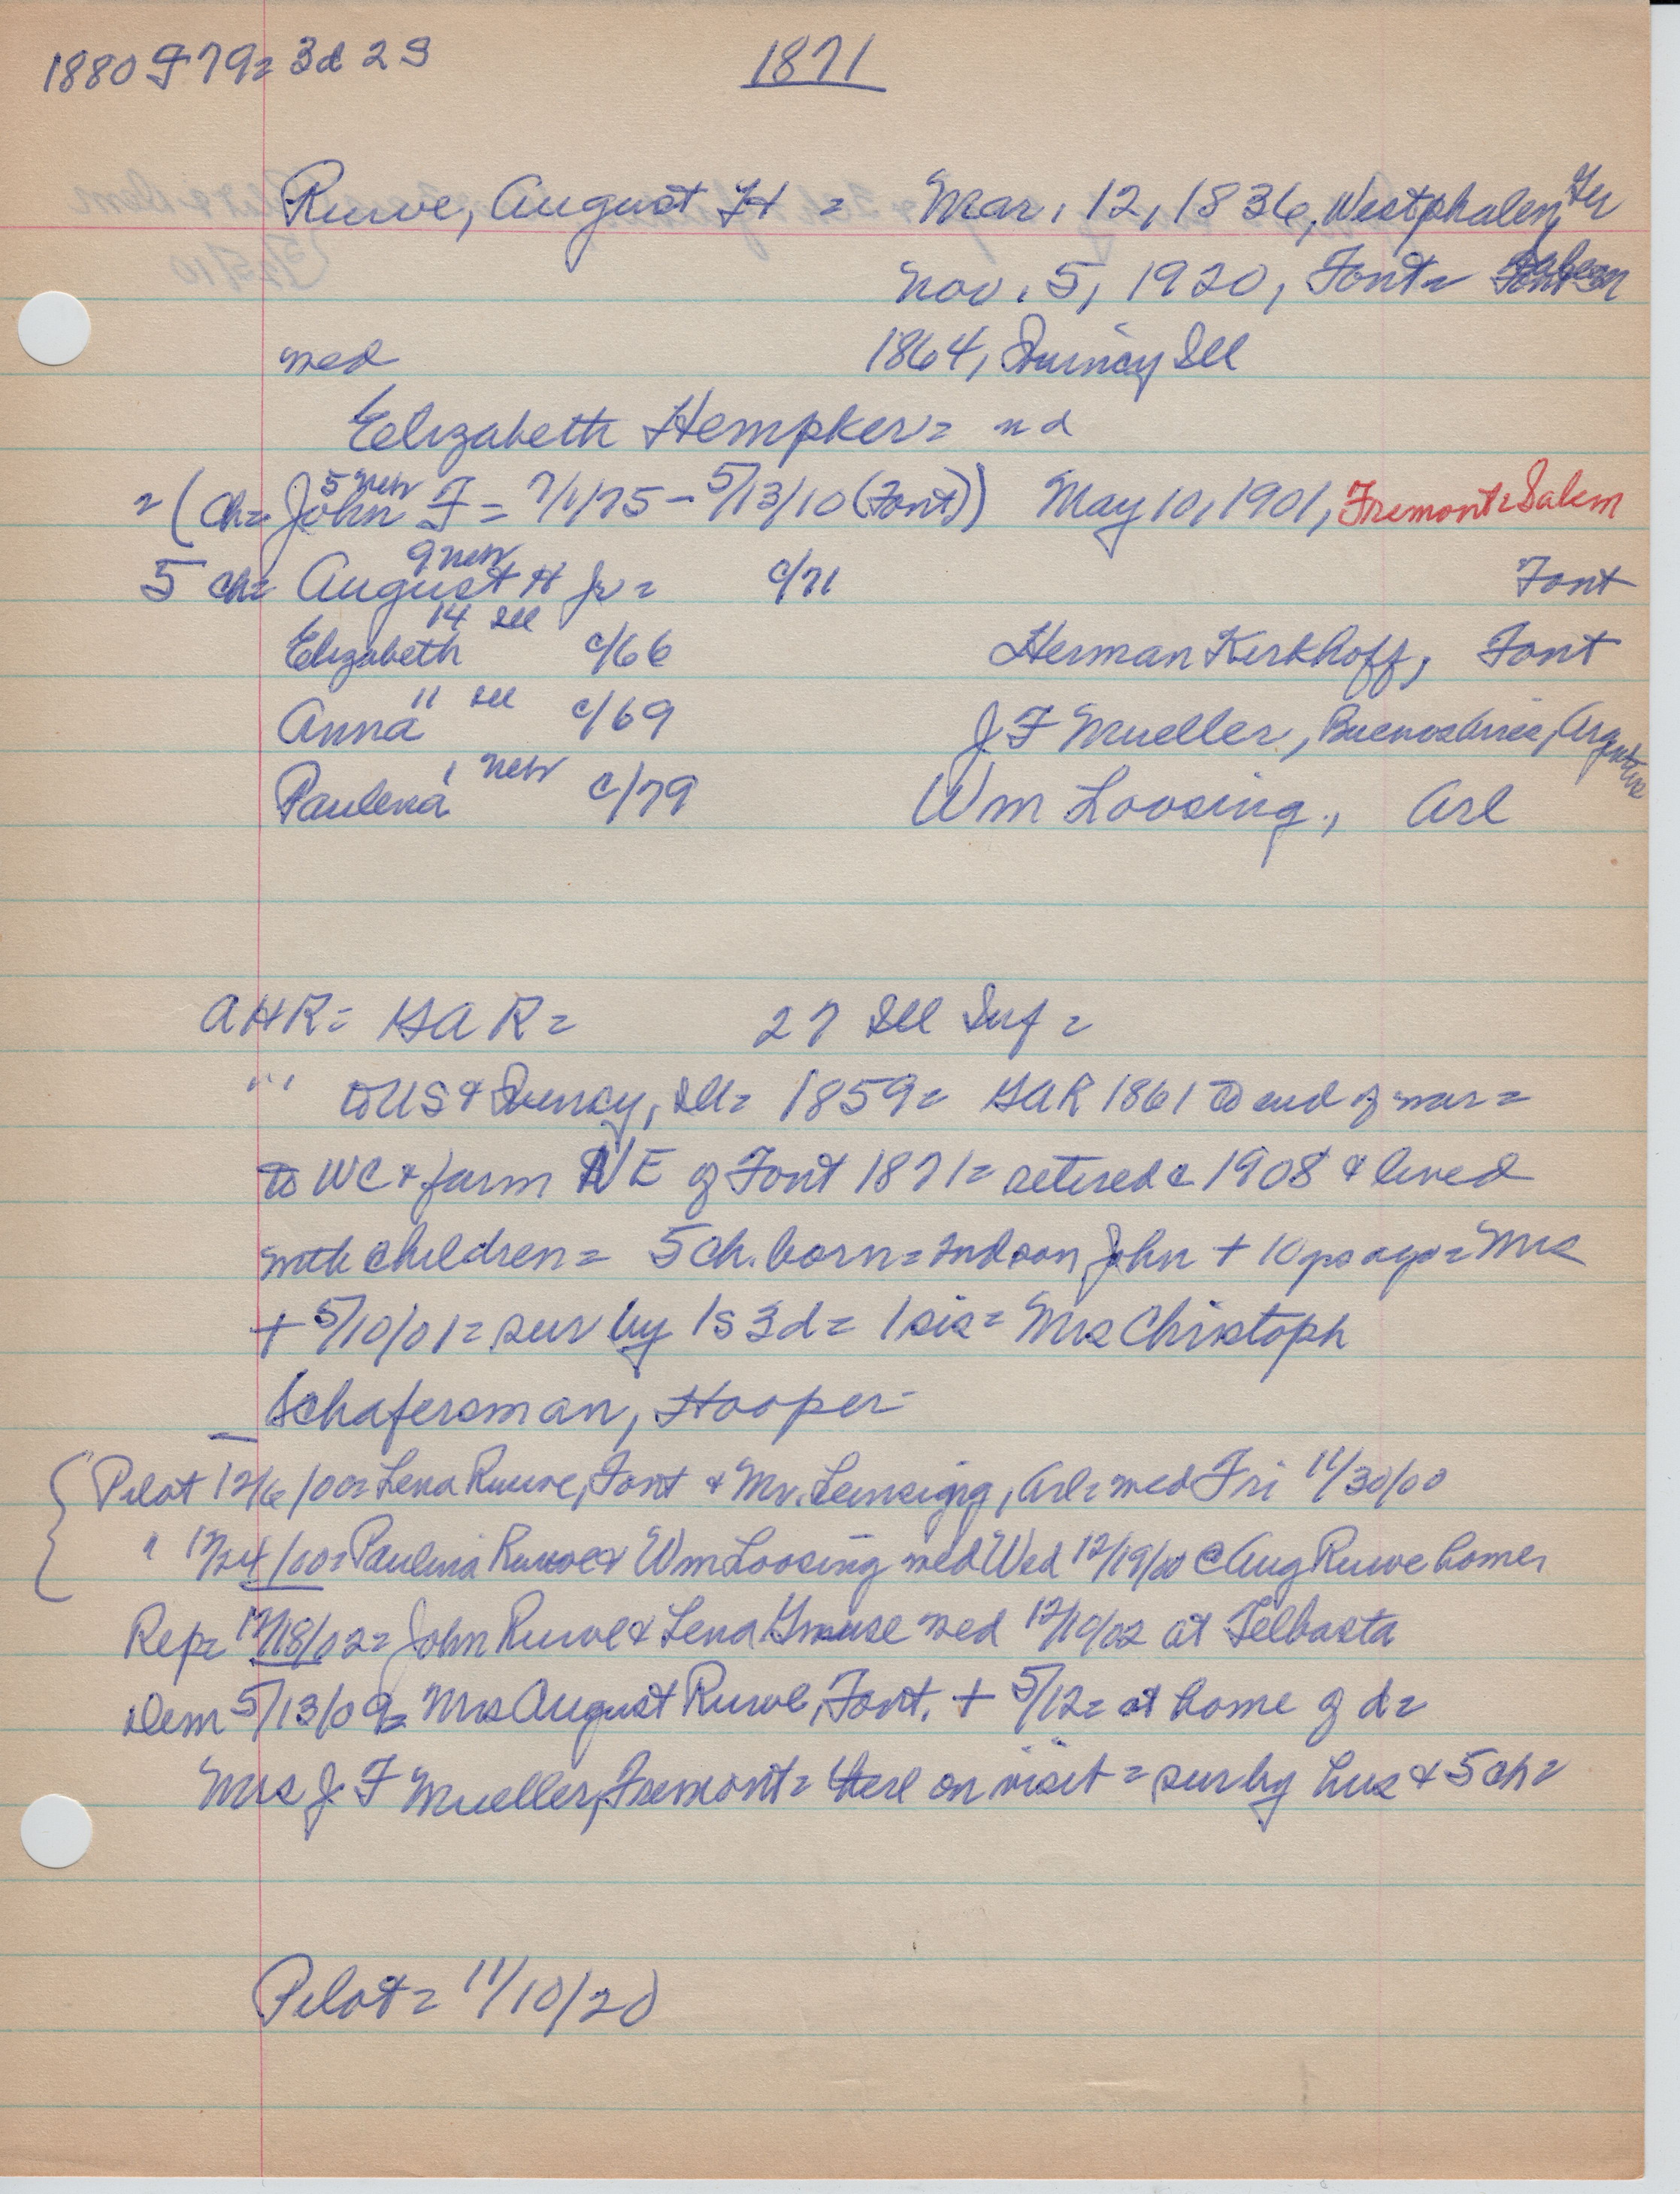 1880 F 79= 3d 2s
1871
Ruwe, August H = Mar. 12, 1836, Westphalen, Ger
Nov. 5, 1920, Font= Salem
med 1864, Quincy Ill
Elizabeth Hempker= nd
= (Ch= John F = 7/1/75 - 5/13/10 (Font)) May 10, 1901, Fremont= Salem
5 neb
9 neb
5 ch= August H Jr = c/71 Font
14 Ill
Elizabeth c/66 Herman Kerkhoff, Font
11 Ill
Anna c/69 J F Mueller, Buenos Aires, Argentine
1 neb
Paulena c/79 Wm Loosing., Arl
AHR= GAR= 27 Ill Inf =
" ' to US & Quincy, Ill= 1859= GAR 1861 to end of war =
to WC & farm NE of Font 1871= retired c 1908 & lived
with children= 5 ch. born= and son John + 10 yrs ago= Mrs
+ 5/10/01= sur by 1s 3d= 1 sis= Mrs Christoph
Schafersman, Hooper-
Pilot 12/6/00= Lena Ruwe, Font & Mr. , Arl= med Fri 11/30/00
" 12/24/00= Paulena Ruwe & Wm Loosing med Wed 12/19/00 @ Aug Ruwe home,
Rep= 12/18/02= John Ruwe & Lena Grause med 12/10/02 at Telbasta
Dem 5/13/09= Mrs August Ruwe, Font. + 5/12= at home of d=
Mrs J. F Mueller, Fremont= there on visit = sur by hus & 5 ch=
Pilot= 11/10/20